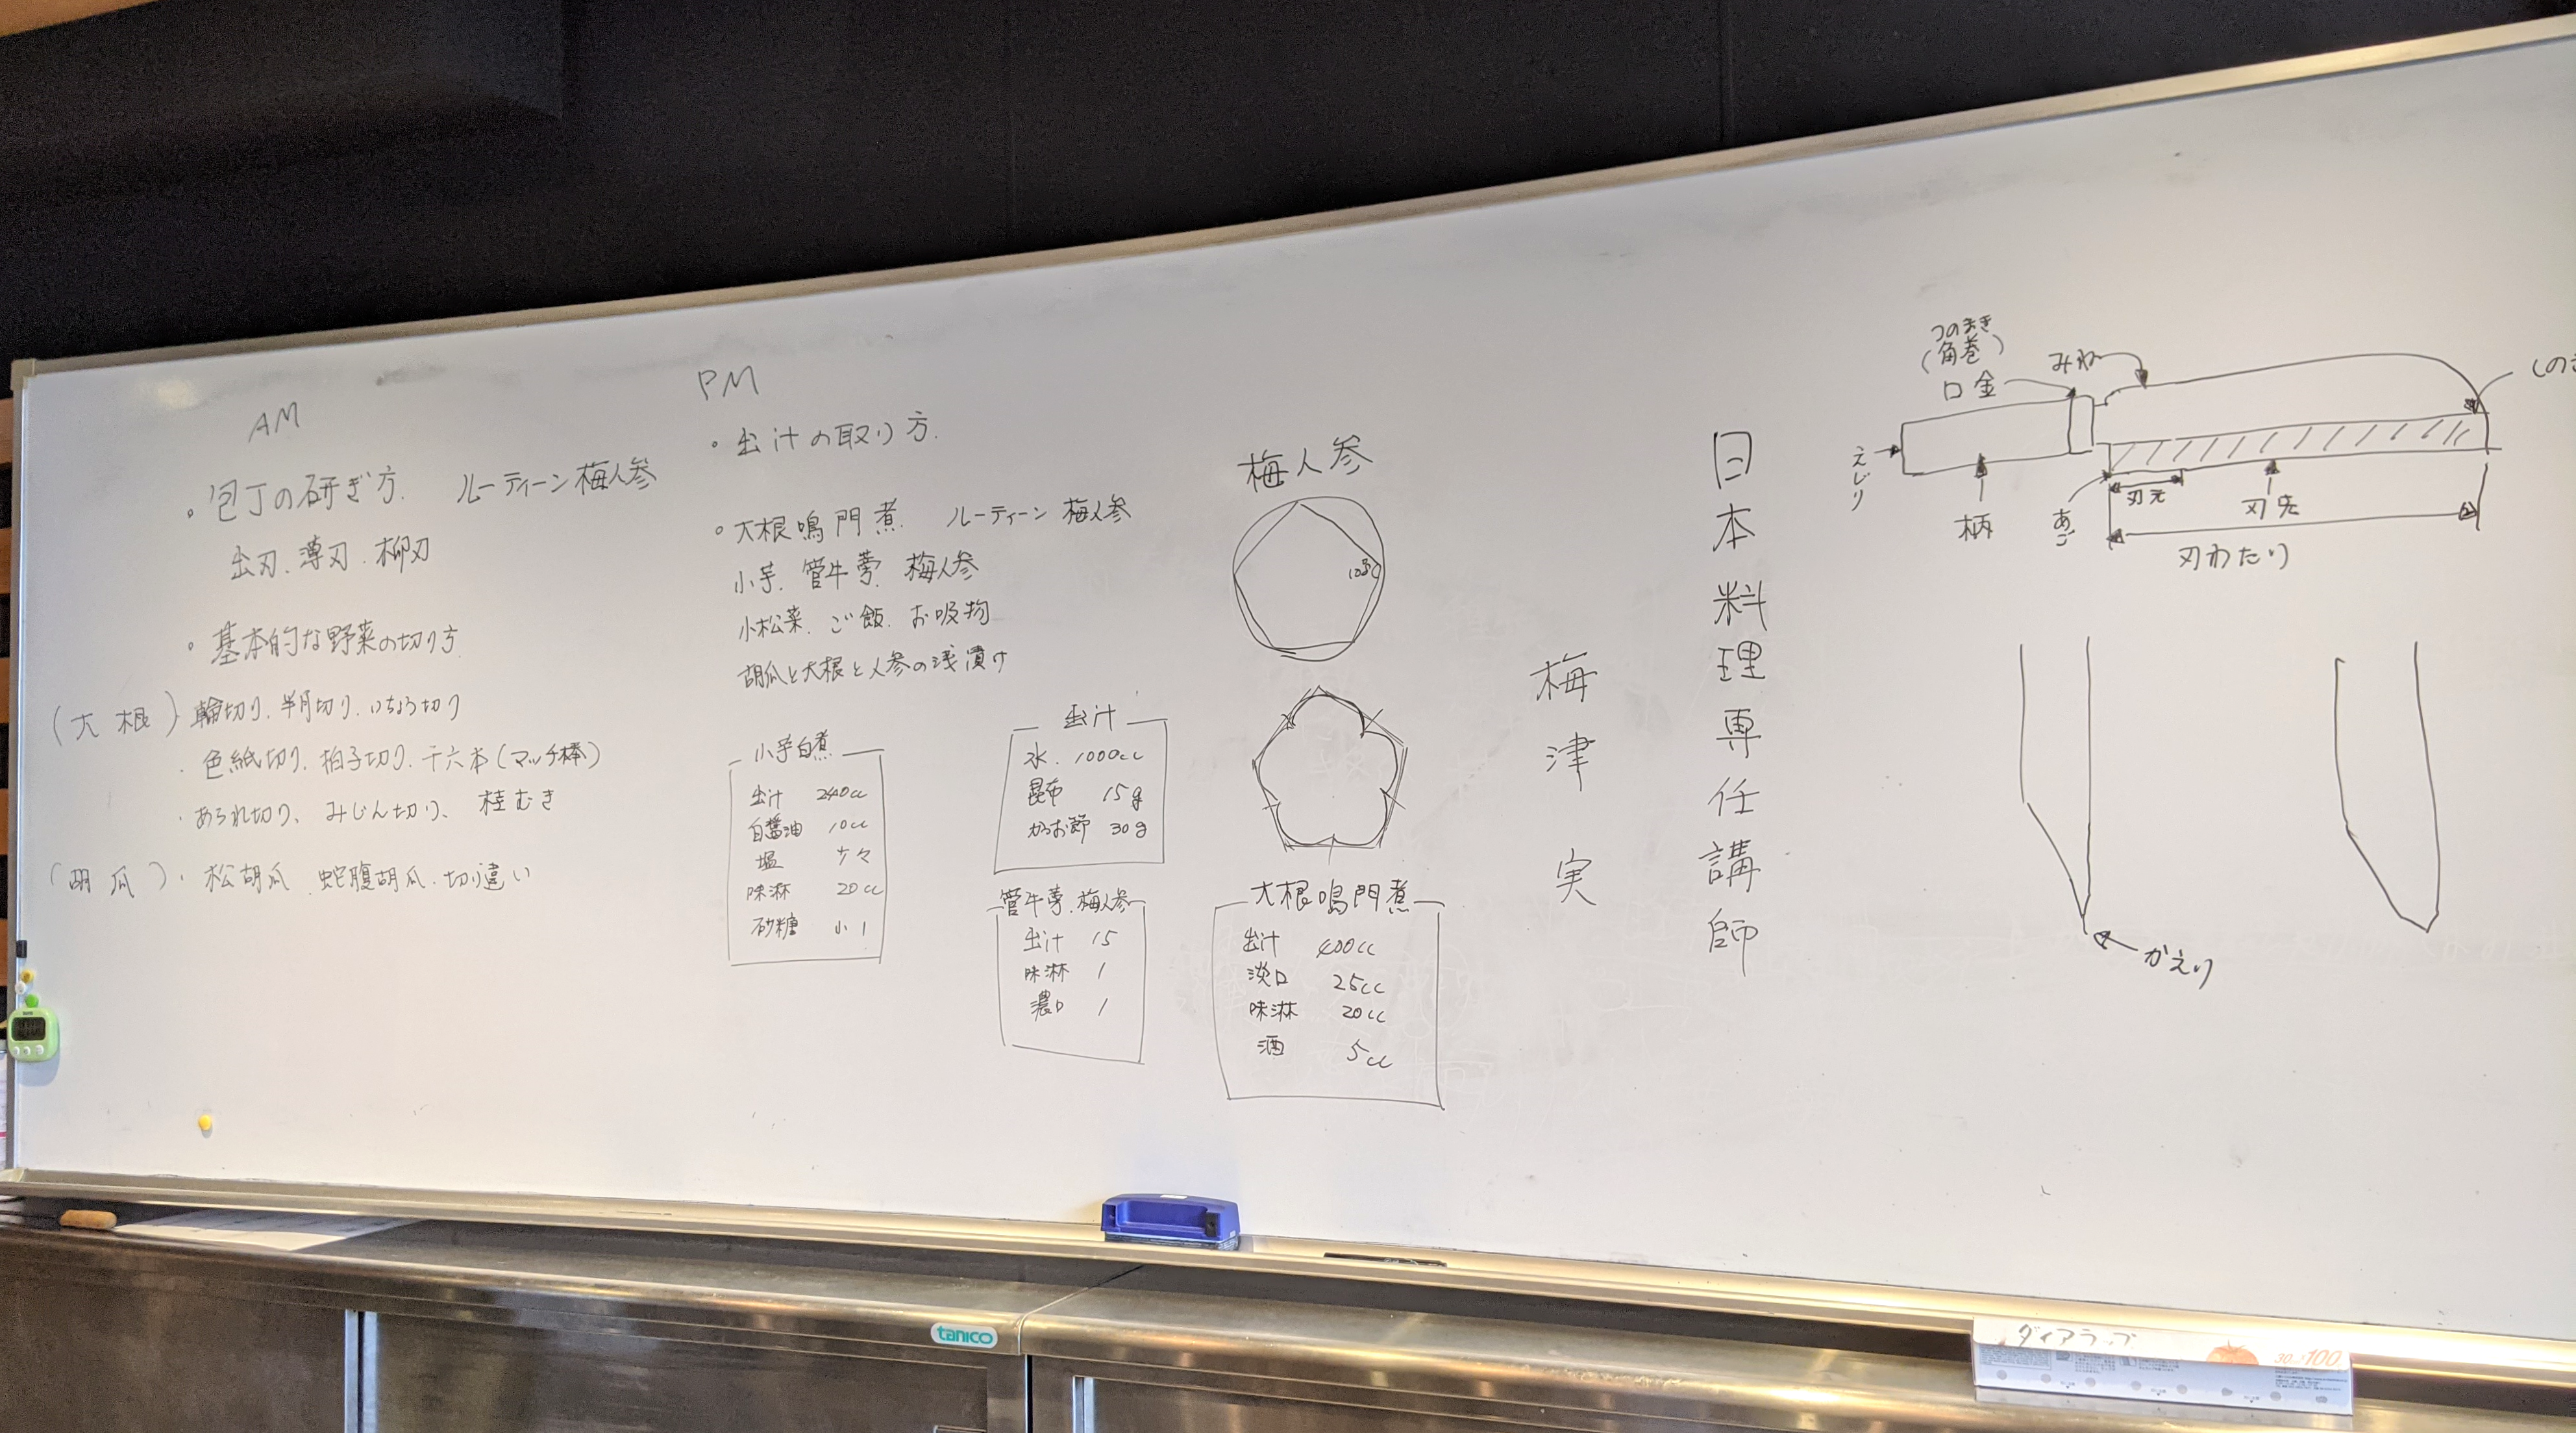 AM
・包丁の研ぎ方. ルーティーン 梅人参
出刃. 薄刃. 柳刃
・基本的な野菜の切り方
(大根) 輪切り. 半月切り. いちょう切り
・色紙切り. 拍子切り. 千六本(マッチ棒)
・あられ切り、みじん切り、桂むき
(胡瓜)・松胡瓜. 蛇腹胡瓜. 切り違い
PM
・出汁の取り方.
・大根鳴門煮. ルーティーン 梅人参
小芋. 管牛蒡. 梅人参
小松菜. ご飯. お吸物
胡瓜と大根と人参の浅漬け
小芋白煮
出汁 240cc
白醤油 10cc
塩 少々
味淋 20cc
砂糖 小1
出汁
水. 1000cc
昆布 15g
かつお節 30g
管牛蒡. 梅人参
出汁 15
味淋 1
濃口 1
梅人参
108°
大根鳴門煮
出汁 400cc
淡口 25cc
味淋 20cc
酒 5cc
日本料理専任講師
梅津 実
つのまき
(角巻)
口金
みね
えじり
柄
あご
刃元
刃先
刃わたり
かえり
tanico
ダイアラップ
100